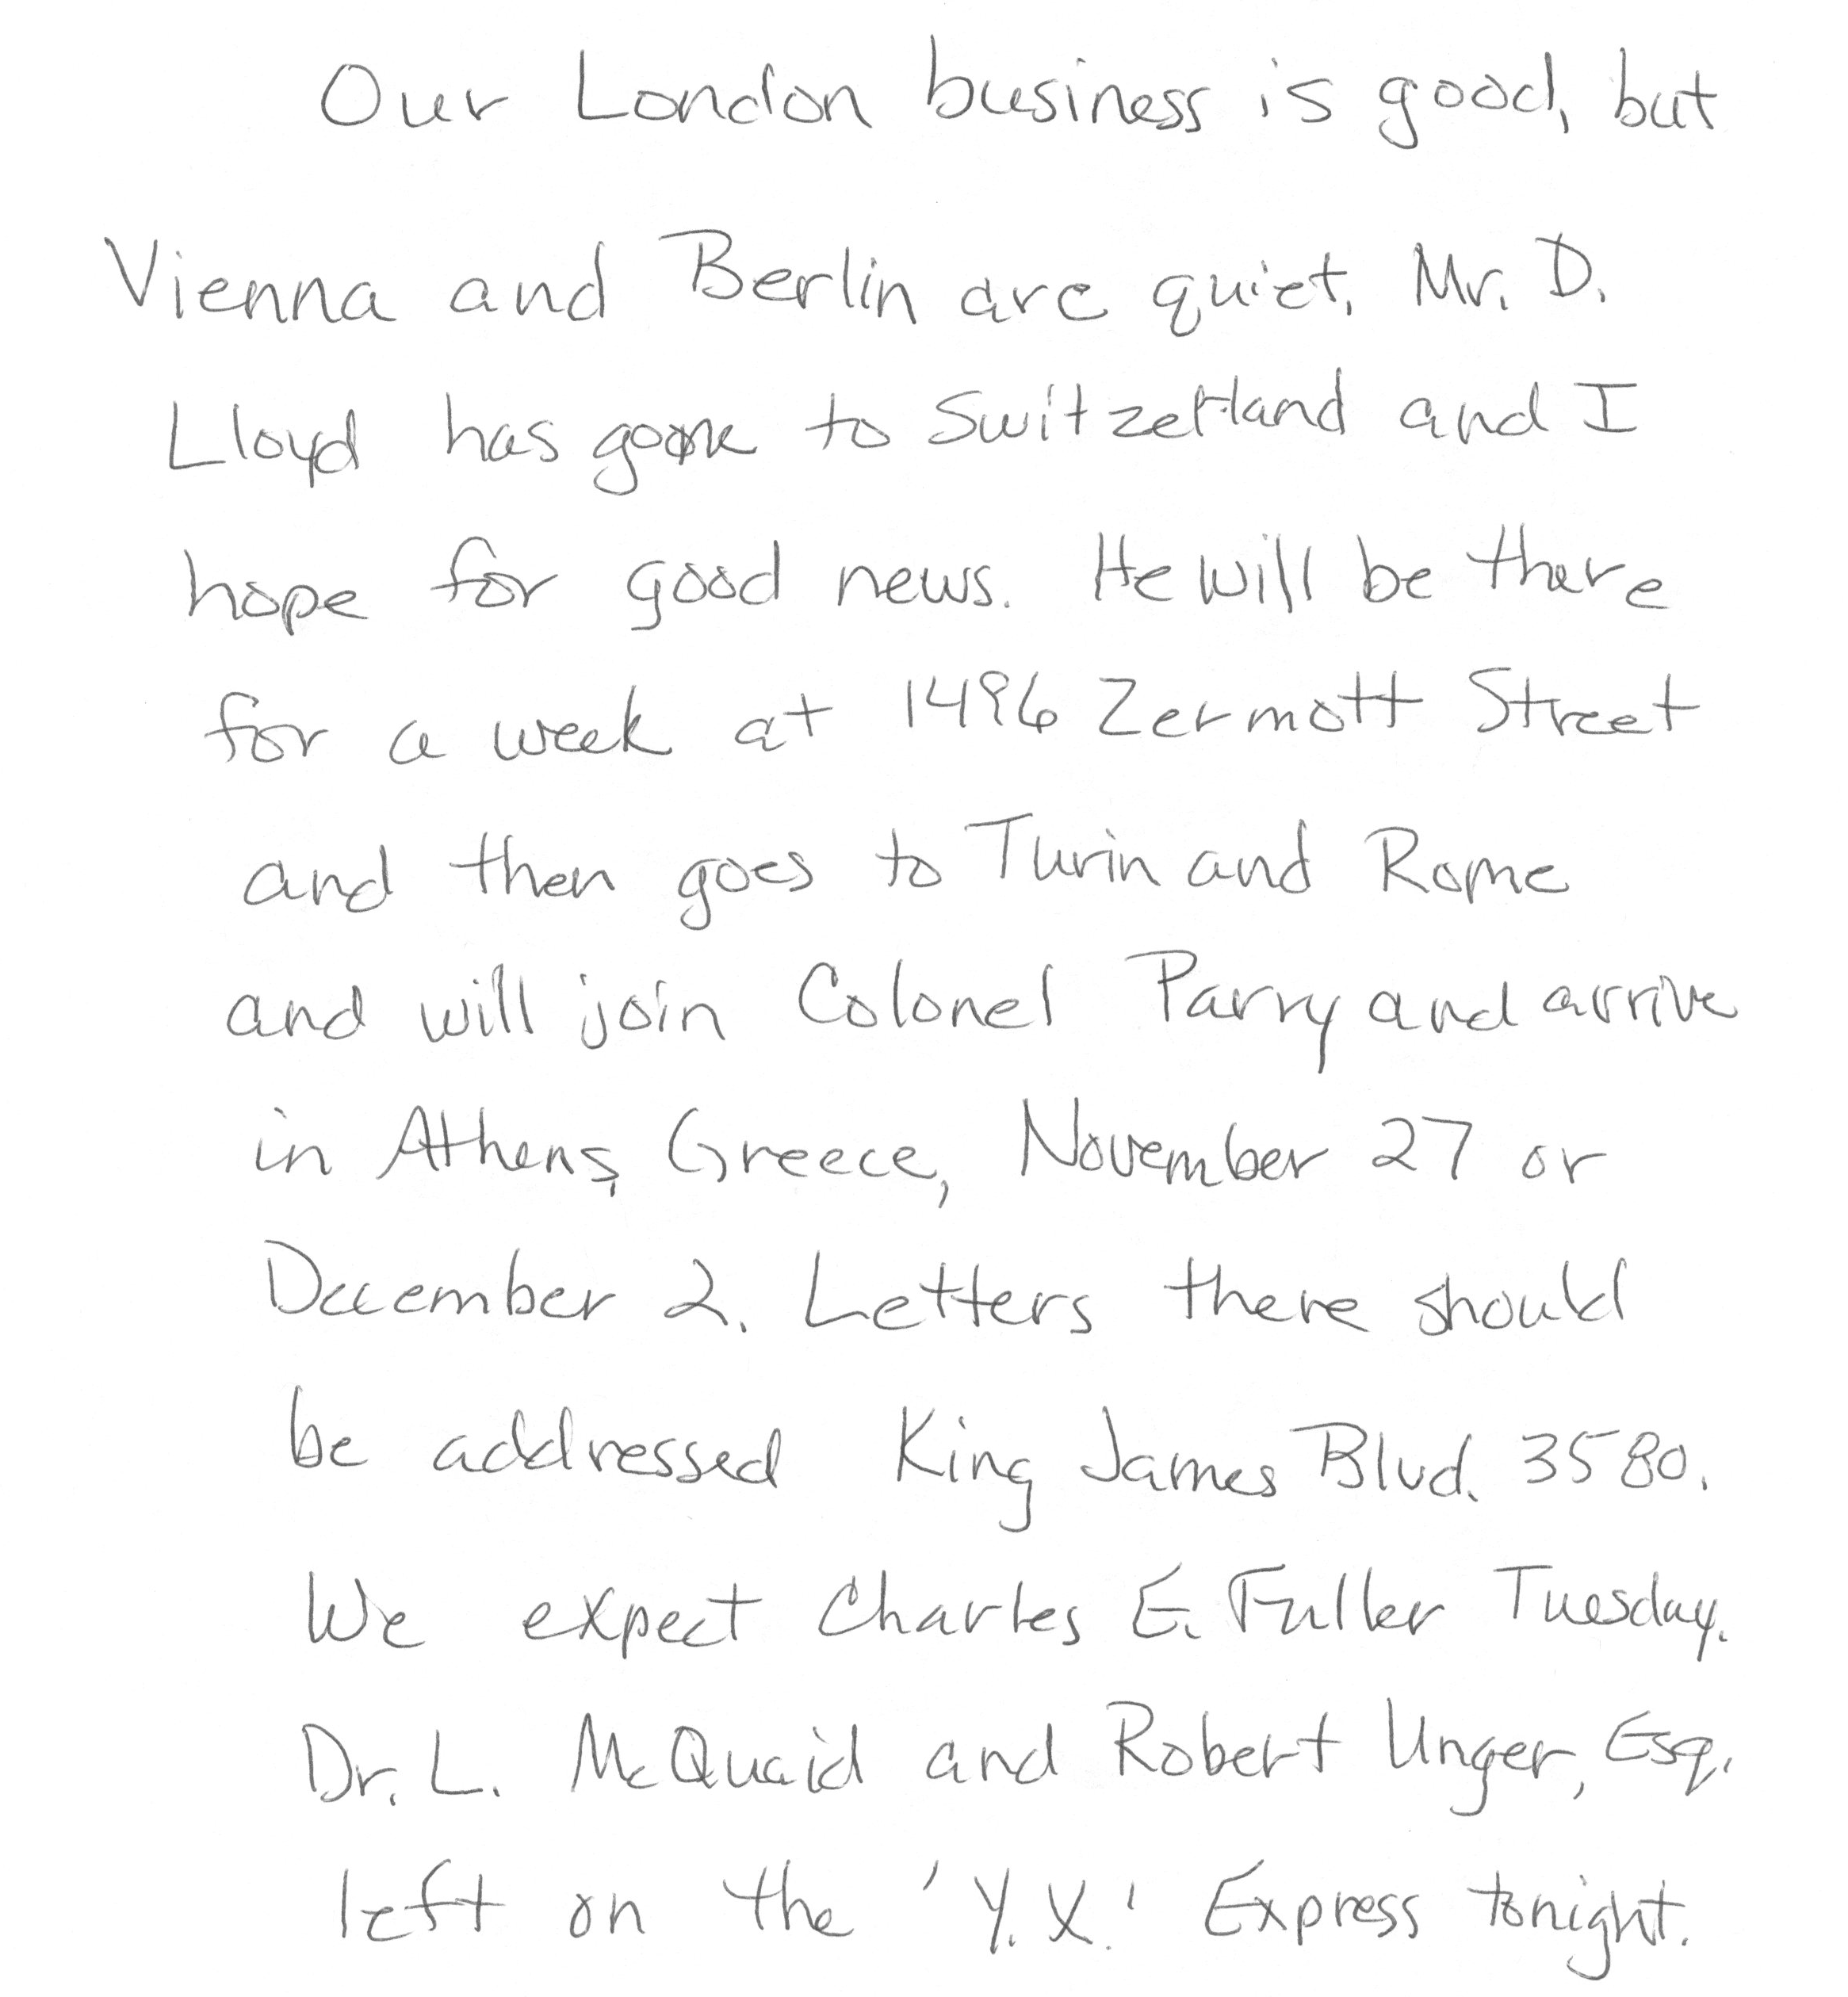 Our London business is good, but
Vienna and Berlin are quiet. Mr. D.
Lloyd has gone to Switzerland and I
hope for good news. He will be there
for a week at 1496 Zermott Street
and then goes to Turin and Rome
and will join Colonel Parry and arrive
in Athens, Greece, November 27 or
December 2. Letters there should
be addressed King James Blvd. 3580.
We expect Charles E. Fuller Tuesday.
Dr. L. McQuaid and Robert Unger, Esq.
left on the 'Y.X.' Express tonight.